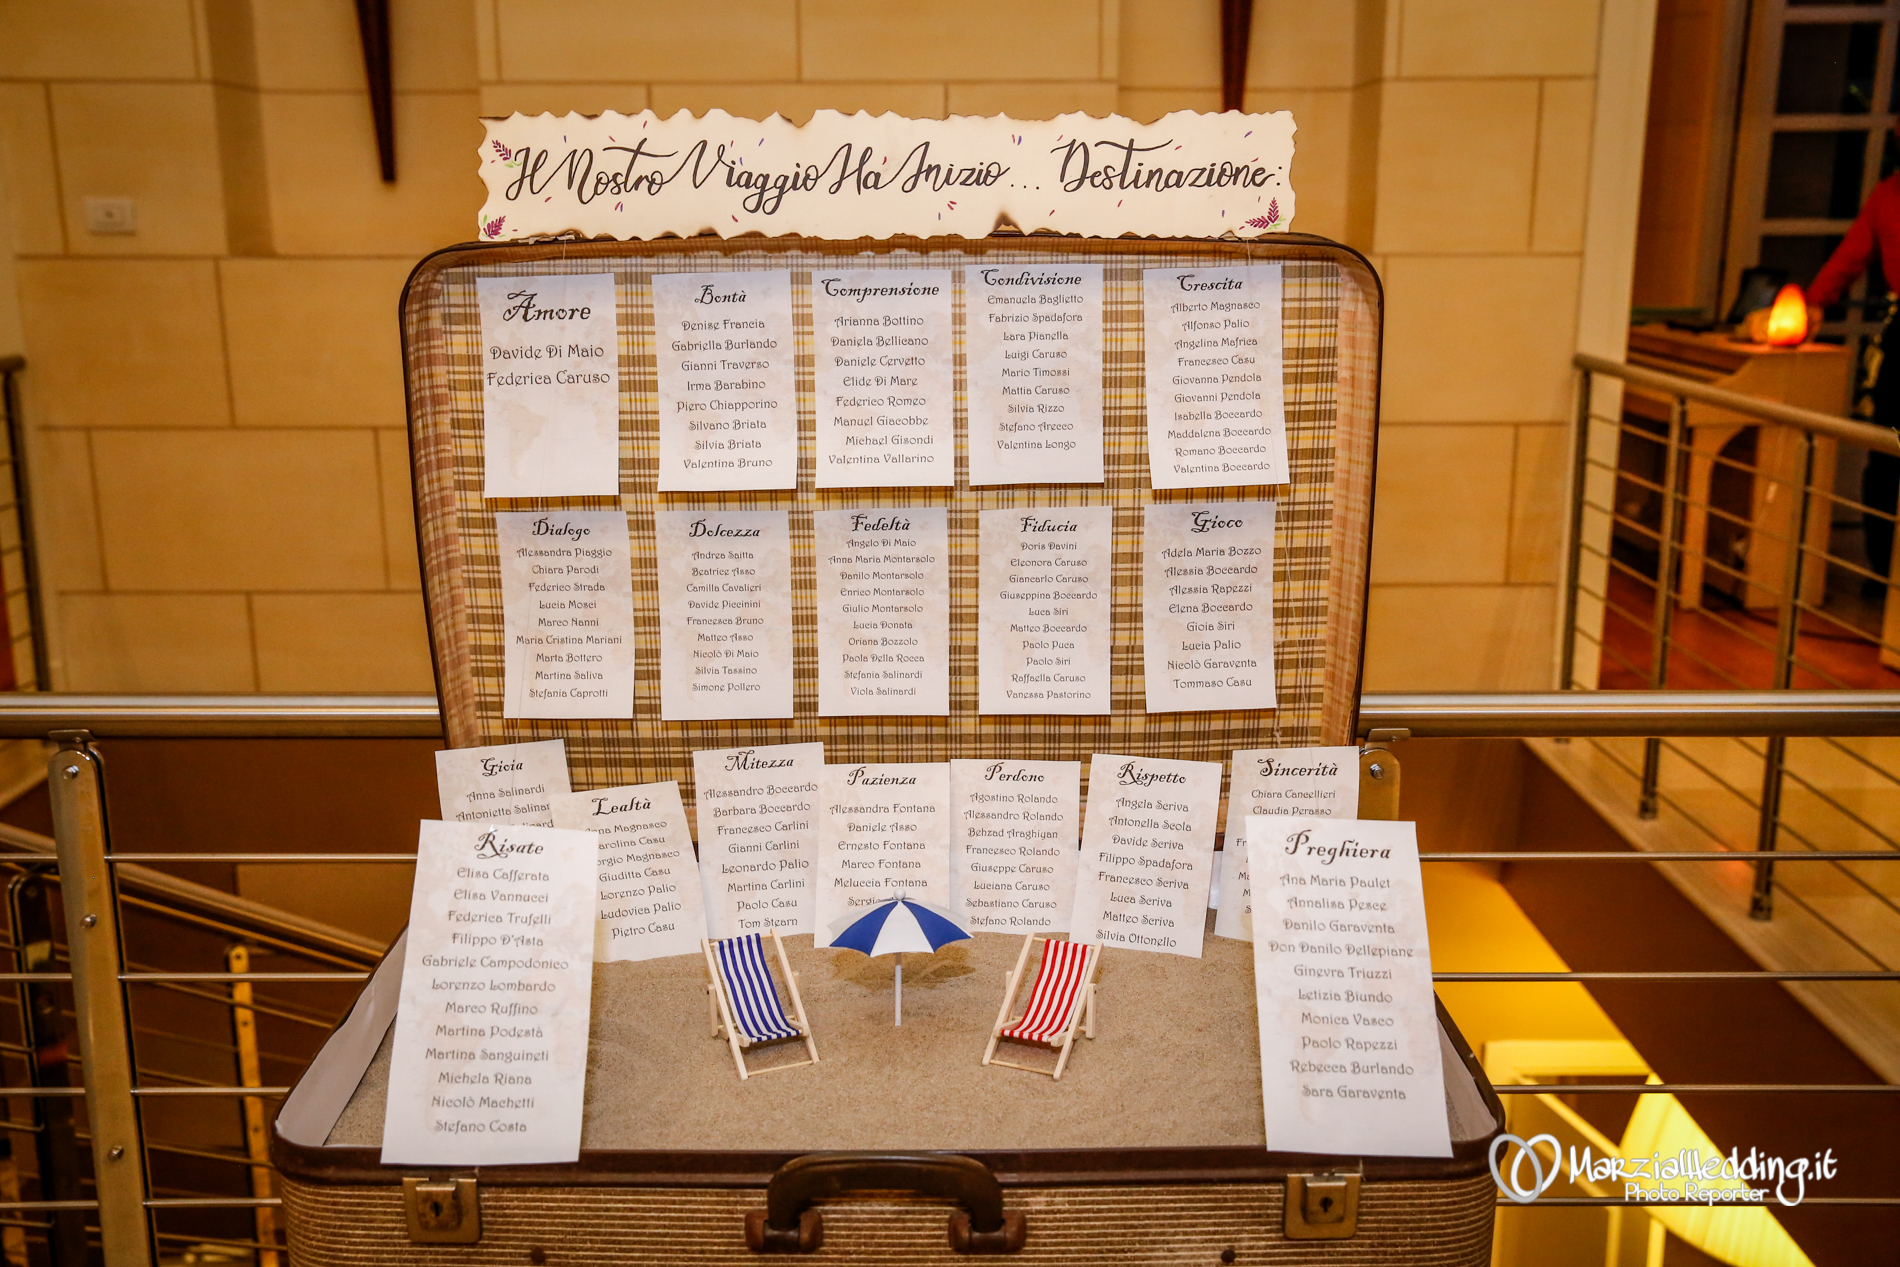 Il Nostro Viaggio Ha Inizio... Destinazione:
Amore
Davide Di Maio
Federica Caruso
Bontà
Denise Francia
Gabriella Burlando
Gianni Traverso
Irma Barabino
Piero Chiapporino
Silvano Briata
Silvia Briata
Valentina Bruno
Comprensione
Arianna Bottino
Daniela Bellicano
Daniele Cervetto
Elide Di Mare
Federico Romeo
Manuel Giacobbe
Michael Gisondi
Valentina Vallarino
Condivisione
Emanuela Baglietto
Fabrizio Spadafora
Lara Pianella
Luigi Caruso
Mario Timossi
Mattia Caruso
Silvia Rizzo
Stefano Arecco
Valentina Longo
Crescita
Alberto Magnasco
Alfonso Palio
Angelina Mafrica
Francesco Casu
Giovanna Pendola
Giovanni Pendola
Isabella Boccardo
Maddalena Boccardo
Romano Boccardo
Valentina Boccardo
Dialogo
Alessandra Piaggio
Chiara Parodi
Federico Strada
Lucia Mosci
Marco Nanni
Maria Cristina Mariani
Marta Bottero
Martina Saliva
Stefania Caprotti
Dolcezza
Andrea Saitta
Beatrice Asso
Camilla Cavalieri
Davide Piccinini
Francesca Bruno
Matteo Asso
Nicolò Di Maio
Silvia Tassino
Simone Pollero
Fedeltà
Angelo Di Maio
Anna Maria Montarsolo
Danilo Montarsolo
Enrico Montarsolo
Giulio Montarsolo
Lucia Donata
Oriana Bozzolo
Paola Della Rocca
Stefania Salinardi
Viola Salinardi
Fiducia
Doris Davini
Eleonora Caruso
Giancarlo Caruso
Giuseppina Boccardo
Luca Siri
Matteo Boccardo
Paolo Puca
Paolo Siri
Raffaella Caruso
Vanessa Pastorino
Gioco
Adela Maria Bozzo
Alessia Boccardo
Alessia Rapezzi
Elena Boccardo
Gioia Siri
Lucia Palio
Nicolò Garaventa
Tommaso Casu
Gioia
Anna Salinardi
Antonietta Salinar
Lealtà
Magnasco
arolina Casu
orgio Magnasco
Giuditta Casu
Lorenzo Palio
Ludovica Palio
Pietro Casu
Mitezza
Alessandro Boccardo
Barbara Boccardo
Francesco Carlini
Gianni Carlini
Leonardo Palio
Martina Carlini
Paolo Casu
Tom Stearn
Pazienza
Alessandra Fontana
Daniele Asso
Ernesto Fontana
Marco Fontana
Meluccia Fontana
Sergi
Perdono
Agostino Rolando
Alessandro Rolando
Behzad Araghiyan
Francesco Rolando
Giuseppe Caruso
Luciana Caruso
Sebastiano Caruso
Stefano Rolando
Rispetto
Angela Scriva
Antonella Scola
Davide Scriva
Filippo Spadafora
Francesco Scriva
Luca Scriva
Matteo Scriva
Silvia Ottonello
Sincerità
Chiara Cancellieri
Claudia Perasso
Risate
Elisa Cafferata
Elisa Vannucci
Federica Trufelli
Filippo D'Asta
Gabriele Campodonico
Lorenzo Lombardo
Marco Ruffino
Martina Podestà
Martina Sanguineti
Michela Riana
Nicolò Machetti
Stefano Costa
Preghiera
Ana Maria Paulet
Annalisa Pesce
Danilo Garaventa
Don Danilo Dellepiane
Ginevra Triuzzi
Letizia Biundo
Monica Vasco
Paolo Rapezzi
Rebecca Burlando
Sara Garaventa
MarziaWedding.it
Photo Reporter